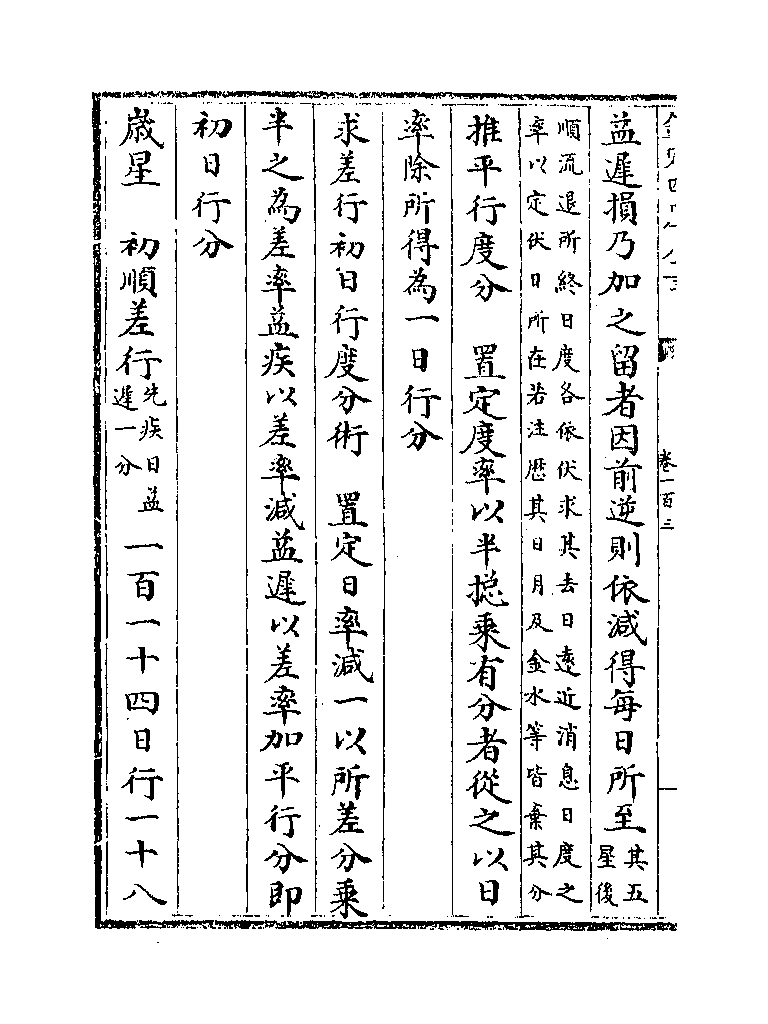 卷一百三
益遲損乃加之留者因前逆則依減得每日所至其五星後
順流退所終日度各依伏求其去日遠近消息日度之
率以定伏日所在若注歷其日月及金水等皆棄其分
推平行度分　置定度率以半揔乘有分者從之以日
率除所得為一日行分
求差行初日行度分術　置定日率減一以所差分乘
半之為差率益疾以差率減益遲以差率加平行分即
初日行分
歲星　初順差行先疾日益遲一分一百一十四日行一十八